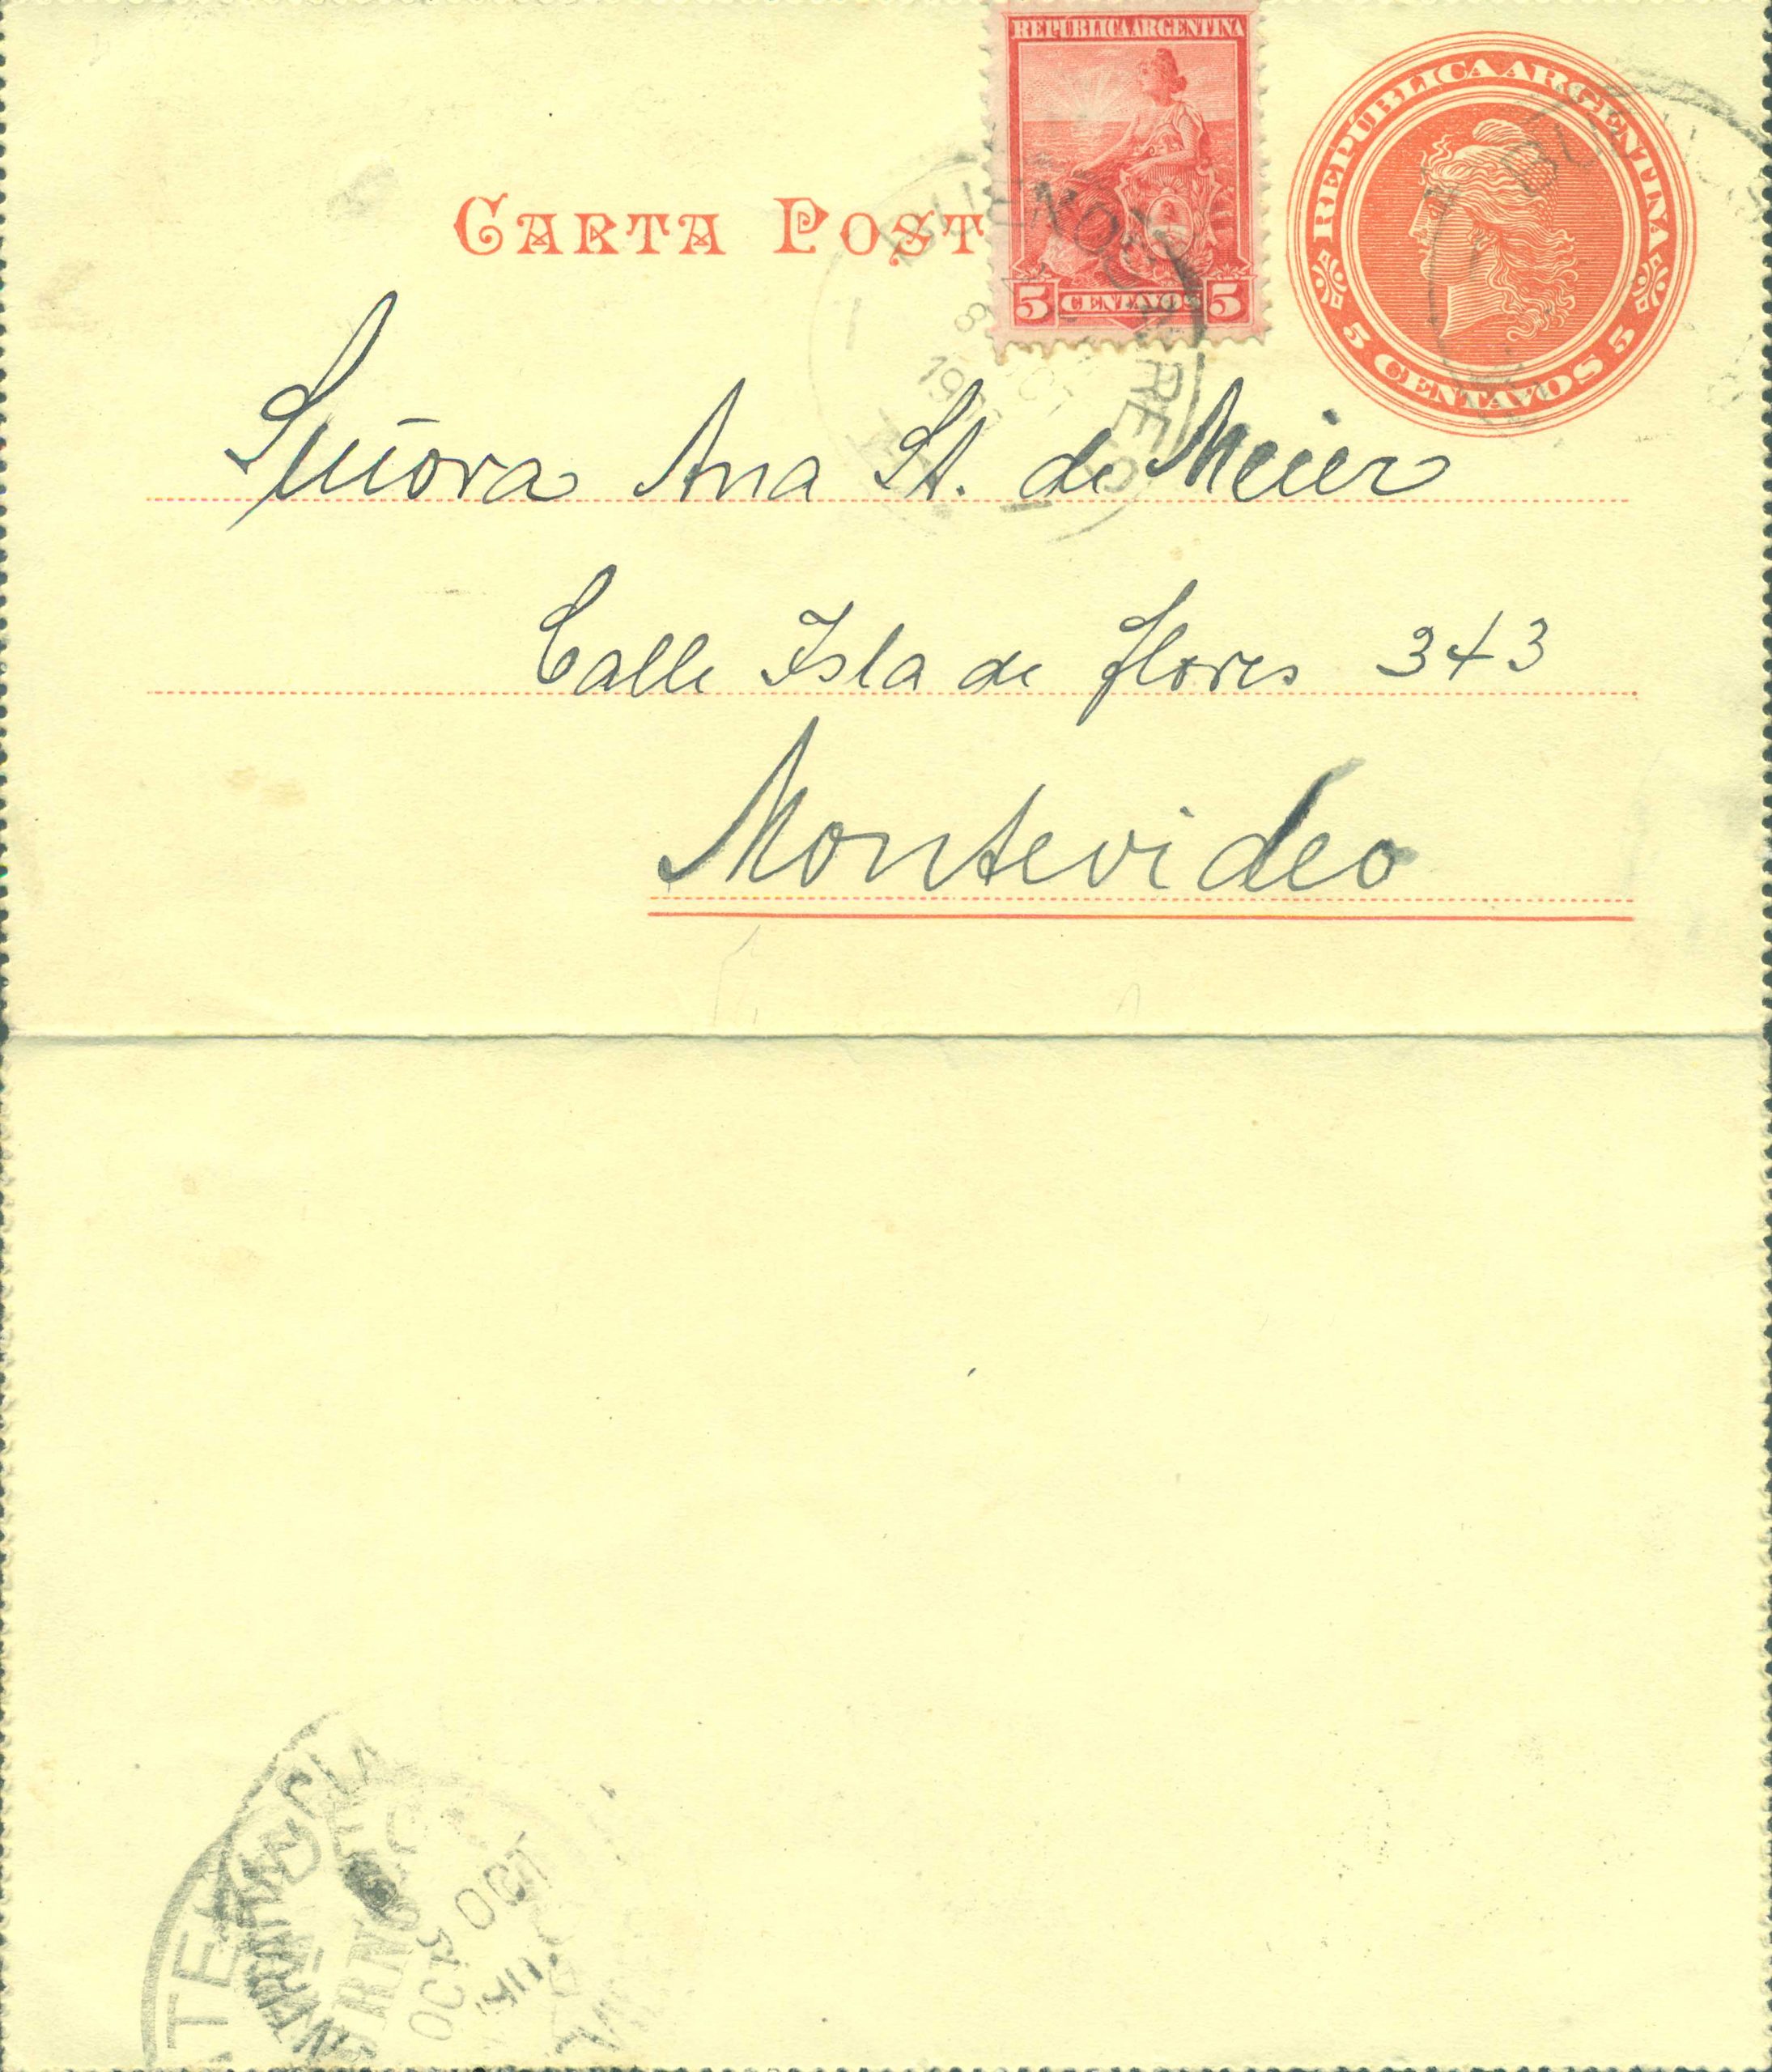 REPÚBLICA ARGENTINA
5 CENTAVOS 5
REPÚBLICA ARGENTINA
5 CENTAVOS 5
CARTA POST
BUENOS AIRES
8 OCT
Señora Ana St. de Meier
Calle Isla de flores 343
Montevideo
OCT
OCT